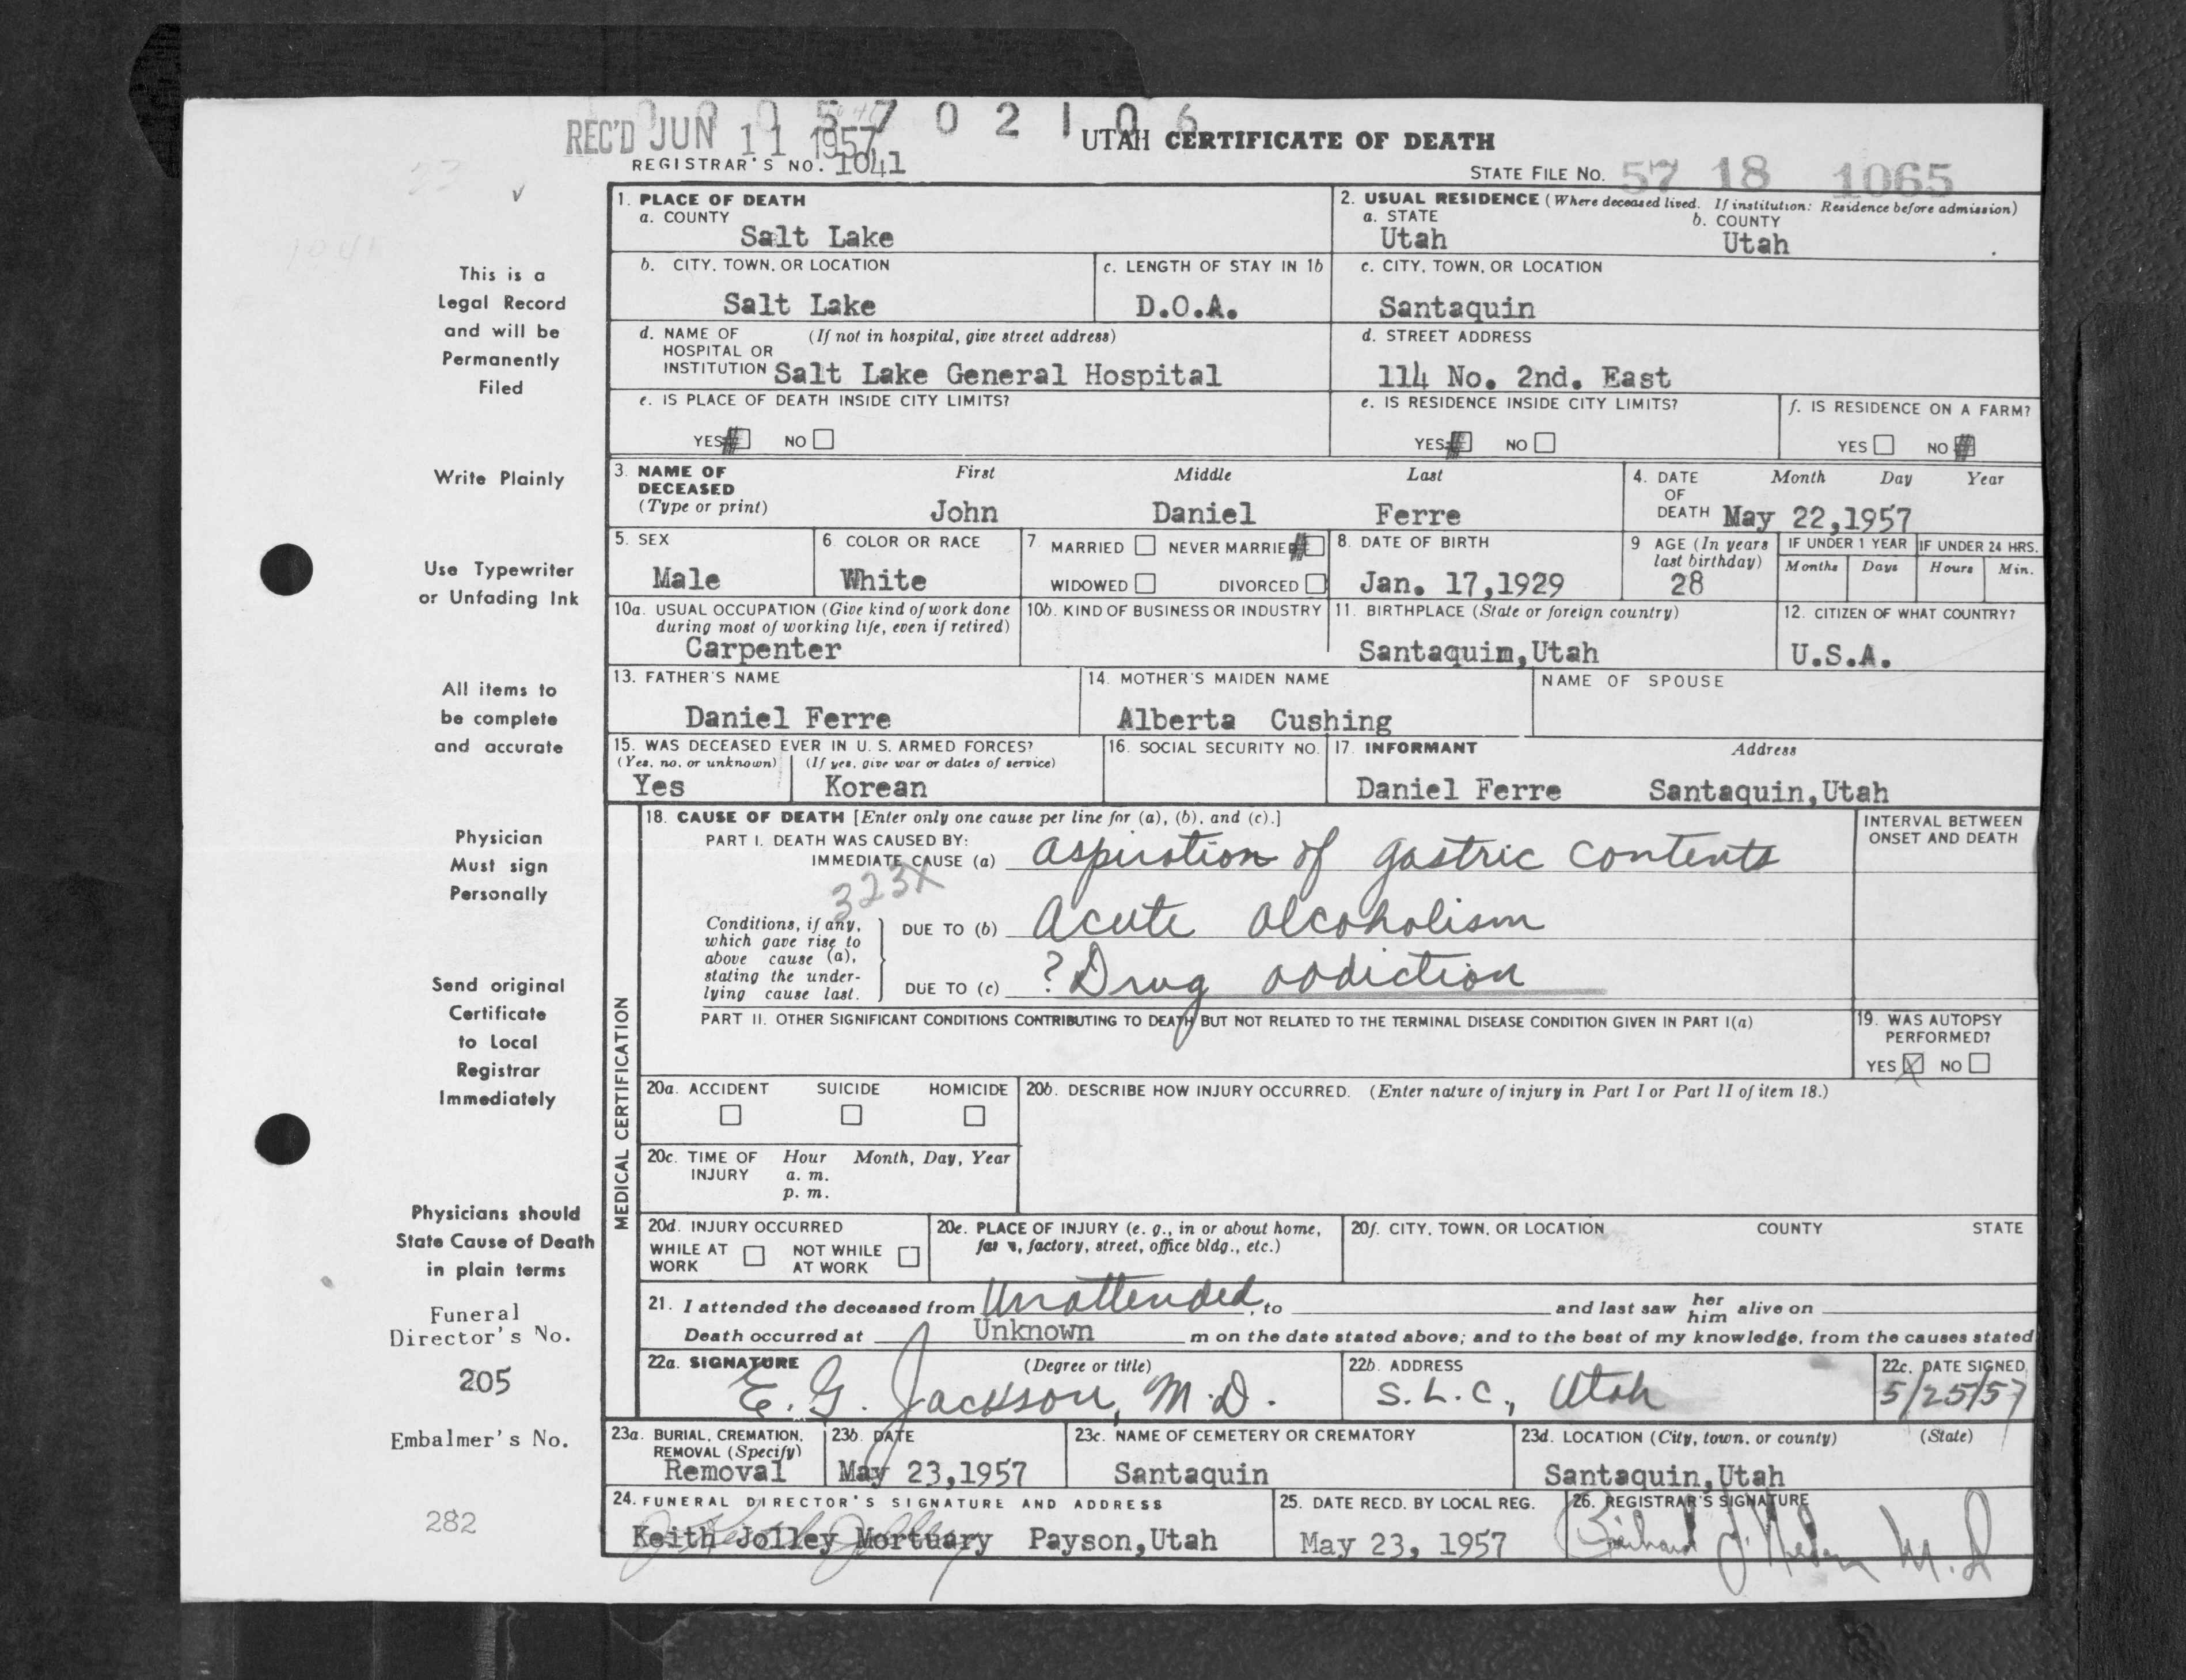 0 0 0 5 7 0 2 1 0 6
REC'D JUN 11 1957
UTAH CERTIFICATE OF DEATH
REGISTRAR'S NO. 1041
STATE FILE NO. 57 18 1065
1. PLACE OF DEATH
a. COUNTY
Salt Lake
2. USUAL RESIDENCE (Where deceased lived. If institution: Residence before admission)
a. STATE b. COUNTY
Utah Utah
b. CITY, TOWN, OR LOCATION
Salt Lake
c. LENGTH OF STAY IN 1b
D.O.A.
c. CITY, TOWN, OR LOCATION
Santaquin
d. NAME OF (If not in hospital, give street address)
HOSPITAL OR
INSTITUTION Salt Lake General Hospital
d. STREET ADDRESS
114 No. 2nd. East
e. IS PLACE OF DEATH INSIDE CITY LIMITS?
YES # NO
e. IS RESIDENCE INSIDE CITY LIMITS?
YES # NO
f. IS RESIDENCE ON A FARM?
YES NO #
3. NAME OF First Middle Last
DECEASED
(Type or print) John Daniel Ferre
4. DATE Month Day Year
OF
DEATH May 22,1957
5. SEX
Male
6. COLOR OR RACE
White
7. MARRIED NEVER MARRIED #
WIDOWED DIVORCED
8. DATE OF BIRTH
Jan. 17,1929
9 AGE (In years
last birthday)
28
IF UNDER 1 YEAR
Months Days
IF UNDER 24 HRS.
Hours Min.
10a. USUAL OCCUPATION (Give kind of work done
during most of working life, even if retired)
Carpenter
10b. KIND OF BUSINESS OR INDUSTRY
11. BIRTHPLACE (State or foreign country)
Santaquim,Utah
12. CITIZEN OF WHAT COUNTRY?
U.S.A.
13. FATHER'S NAME
Daniel Ferre
14. MOTHER'S MAIDEN NAME
Alberta Cushing
NAME OF SPOUSE
15. WAS DECEASED EVER IN U. S. ARMED FORCES?
(Yes, no, or unknown) (If yes, give war or dates of service)
Yes Korean
16. SOCIAL SECURITY NO.
17. INFORMANT Address
Daniel Ferre Santaquin,Utah
MEDICAL CERTIFICATION
18. CAUSE OF DEATH [Enter only one cause per line for (a), (b), and (c).]
PART I. DEATH WAS CAUSED BY:
IMMEDIATE CAUSE (a) aspiration of gastric contents
323X
INTERVAL BETWEEN
ONSET AND DEATH
Conditions, if any,
which gave rise to
above cause (a),
stating the under-
lying cause last.
DUE TO (b) Acute alcoholism
DUE TO (c) ? Drug addiction
PART II. OTHER SIGNIFICANT CONDITIONS CONTRIBUTING TO DEATH BUT NOT RELATED TO THE TERMINAL DISEASE CONDITION GIVEN IN PART I(a)
19. WAS AUTOPSY
PERFORMED?
YES X NO
20a. ACCIDENT SUICIDE HOMICIDE
20b. DESCRIBE HOW INJURY OCCURRED. (Enter nature of injury in Part I or Part II of item 18.)
20c. TIME OF Hour Month, Day, Year
INJURY a. m.
p. m.
20d. INJURY OCCURRED
WHILE AT NOT WHILE
WORK AT WORK
20e. PLACE OF INJURY (e. g., in or about home,
, factory, street, office bldg., etc.)
20f. CITY, TOWN, OR LOCATION COUNTY STATE
21. I attended the deceased from Unattended, to and last saw her him alive on
Death occurred at Unknown m on the date stated above; and to the best of my knowledge, from the causes stated
22a. SIGNATURE (Degree or title)
E. G. Jackson, M.D.
22b. ADDRESS
S.L.C., Utah
22c. DATE SIGNED
5/25/57
23a. BURIAL, CREMATION,
REMOVAL (Specify)
Removal
23b. DATE
May 23,1957
23c. NAME OF CEMETERY OR CREMATORY
Santaquin
23d. LOCATION (City, town, or county) (State)
Santaquin,Utah
24. FUNERAL DIRECTOR'S SIGNATURE AND ADDRESS
Keith Jolley Mortuary Payson,Utah
25. DATE RECD. BY LOCAL REG.
May 23, 1957
26. REGISTRAR'S SIGNATURE
M.D
This is a
Legal Record
and will be
Permanently
Filed
Write Plainly
Use Typewriter
or Unfading Ink
All items to
be complete
and accurate
Physician
Must sign
Personally
Send original
Certificate
to Local
Registrar
Immediately
Physicians should
State Cause of Death
in plain terms
Funeral
Director's No.
205
Embalmer's No.
282